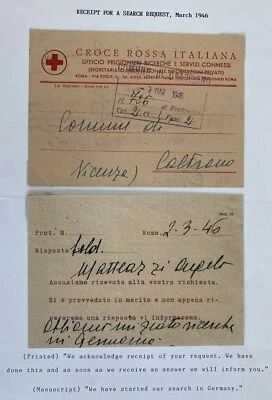 RECEIPT FOR A SEARCH REQUEST, March 1946
CROCE ROSSA ITALIANA
UFFICIO PRIGIONIERI RICERCHE E SERVIZI CONNESSI
2 MAR 1946
726
Comune di
Caltrano
Vicenza)
Prot. N. Roma, 2-3-46
Risposta Sold.
Matteazzi Angelo
Accusiamo ricevuta alla vostra richiesta.
Si è provveduto in merito e non appena ri-
ceveremo una risposta vi informeremo.
Abbiamo iniziato ricerche
in Germania.
(Printed) "We acknowledge receipt of your request. We have
done this and as soon as we receive an answer we will inform you."
(Manuscript) "We have started our search in Germany."